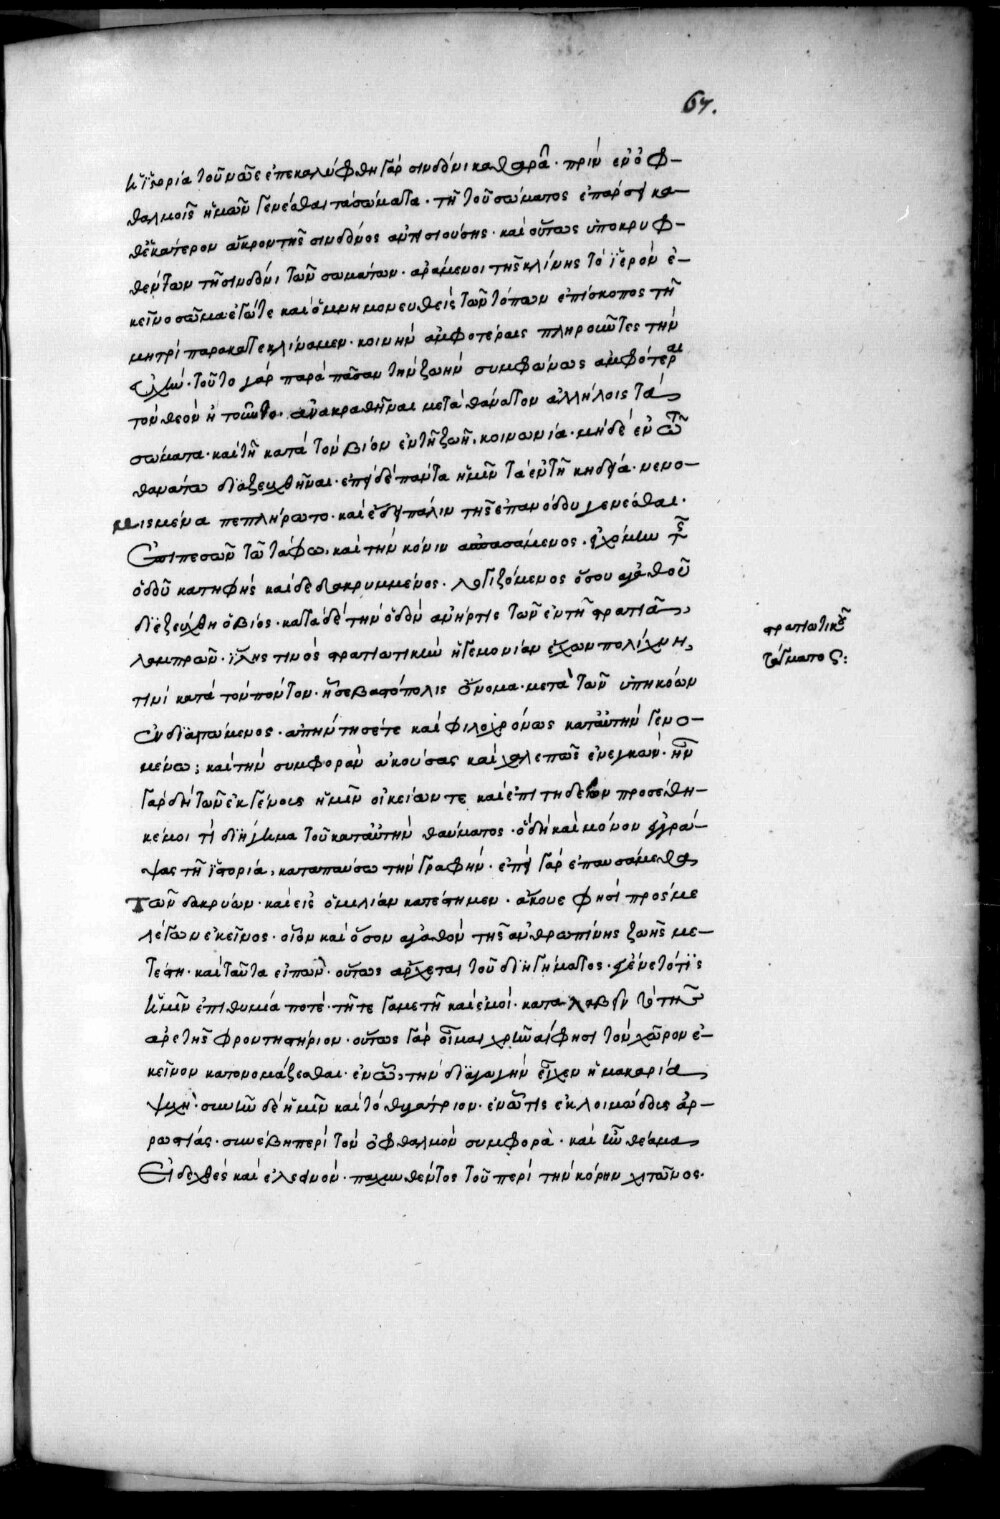 67.
ἡ ἱστορία τοῦ νῶε ἐπεκαλύφθη γὰρ σινδόνι καθαρᾶ· πρὶν ἐν ὀφ-
θαλμοῖς ἡμῶν γενέσθαι τὰ σώματα· τῆ τοῦ σώματος ἐπάρσει κα-
θ' ἑκάτερον ἄκρον τῆς σινδόνος ἀντισιούσης· καὶ οὕτως ὑποκρυφ-
θέντων τῆ σινδόνι τῶν σωμάτων· ἀράμενοι τῆς κλίνης τὸ ἱερὸν ἐ-
κεῖνο σῶμα ἐγώ τε καὶ ὁ μνημονευθεὶς τῶν τόπων ἐπίσκοπος τῆ
μητρὶ παρακατεκλίναμεν· κοινὴν ἀμφοτέραις πληροῦντες τὴν
εὐχήν· τοῦτο γὰρ παρὰ πᾶσαν τὴν ζωὴν συμφώνως ἀμφότεραι
τὸν θεὸν ἠτοῦντο· ἀνακραθῆναι μετὰ θάνατον ἀλλήλοις τὰ
σώματα· καὶ τῆ κατὰ τὸν βίον ἐν τῆ ζωῆ, κοινωνία· μηδὲ ἐν τῶ
θανάτω διαζευχθῆναι· ἐπεὶ δὲ πάντα ἡμῖν τὰ ἐν τῆ κηδεία· νενο-
μισμένα πεπλήρωτο· καὶ ἔδει πάλιν τῆς ἐπανόδου γενέσθαι·
ἐπιπεσὼν τῶ τάφω, καὶ τὴν κόνιν ἀσπασάμενος· εἰχόμην τῆς
ὁδοῦ κατηφὴς καὶ δεδακρυμμένος· λογιζόμενος ὅσου ἀγαθοῦ
διεζεύχθη ὁ βίος· κατὰ δὲ τὴν ὁδὸν ἀνήρ τις τῶν ἐν τῆ στρατιᾶ
λαμπρῶν· ἴλης τινὸς στρατιωτικὴν ἡγεμονίαν ἔχων πολίχνη,
στρατιωτικοῦ
τάγματος:
τινὶ κατὰ τὸν πόντον· ἧ σεβαστόπολις ὄνομα· μετὰ τῶν ὑπηκόων
ἐνδιαιτώμενος· ἀπήντησέ τε καὶ φιλοφρόνως κατ' αὐτὴν γενο-
μένω; καὶ τὴν συμφορὰν ἀκούσας καὶ χαλεπῶς ἐνεγκών· ἦν
γὰρ δὴ τῶν ἐκ γένους ἡμῖν οἰκείων τε καὶ ἐπιτηδείων προσέθη-
κέ μοι τὶ διήγημα τοῦ κατ' αὐτὴν θαύματος· ὃ δὴ καὶ μόνον ἐγγρά-
ψας τῆ ἱστορία, καταπαύσω τὴν γραφήν· ἐπεὶ γὰρ ἐπαυσάμεθα
τῶν δακρύων· καὶ εἰς ὁμιλίαν κατέστημεν· ἄκουε φησὶ πρός με
λέγων ἐκεῖνος· οἷον καὶ ὅσον ἀγαθὸν τῆς ἀνθρωπίνης ζωῆς με-
τέστη· καὶ ταῦτα εἰπὼν οὕτως ἄρχεται τοῦ διηγήματος· ἐγένετό τις
ἡμῖν ἐπιθυμία ποτὲ· τῆ τε γαμετῆ καὶ ἐμοί· καταλαβεῖν τὸ τῆς
ἀρετῆς φροντιστήριον· οὕτως γὰρ οἶμαι χρῆναί φησι τὸν χῶρον ἐ-
κεῖνον κατονομάζεσθαι· ἐν ὧ, τὴν διαγωγὴν εἶχεν ἡ μακαρία
ψυχὴ· συνῆν δὲ ἡμῖν καὶ τὸ θυγάτριον· ἐν ὧ τις ἐκ λοιμώδους ἀρ-
ρωστίας· συνέβη περὶ τὸν ὀφθαλμὸν συμφορὰ· καὶ ἦν θέαμα
εἰδεχθὲς καὶ ἐλεεινόν· παχυνθέντος τοῦ περὶ τὴν κόρην χιτῶνος·